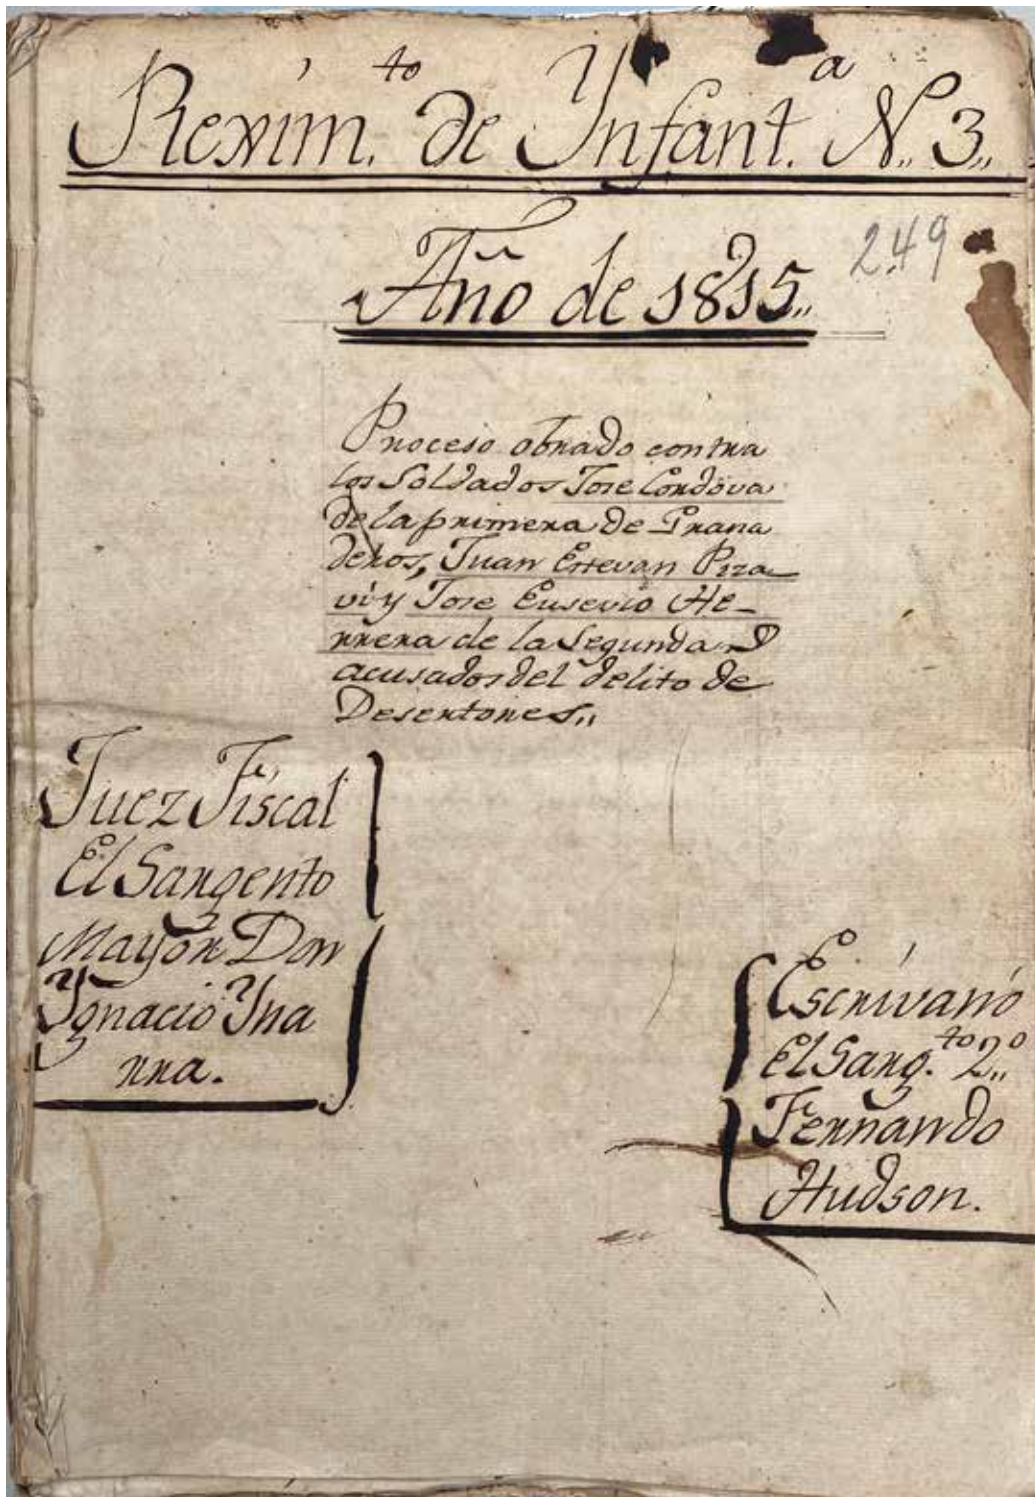 Rexim.to de Ynfant.a N,, 3,,
Año de 1815,,
249
Proceso obrado contra
los Soldados Jose Cordova
de la primera de Grana
deros, Juan Estevan Piza
vi y Jose Eusevio He-
rrera de la Segunda
acusados del delito de
Desertores,,
Juez Fiscal
El Sargento
Mayor Don
Ygnacio Yna
rra.
Escrivano
El Sarg.to 2,,o
Fernando
Hudson.